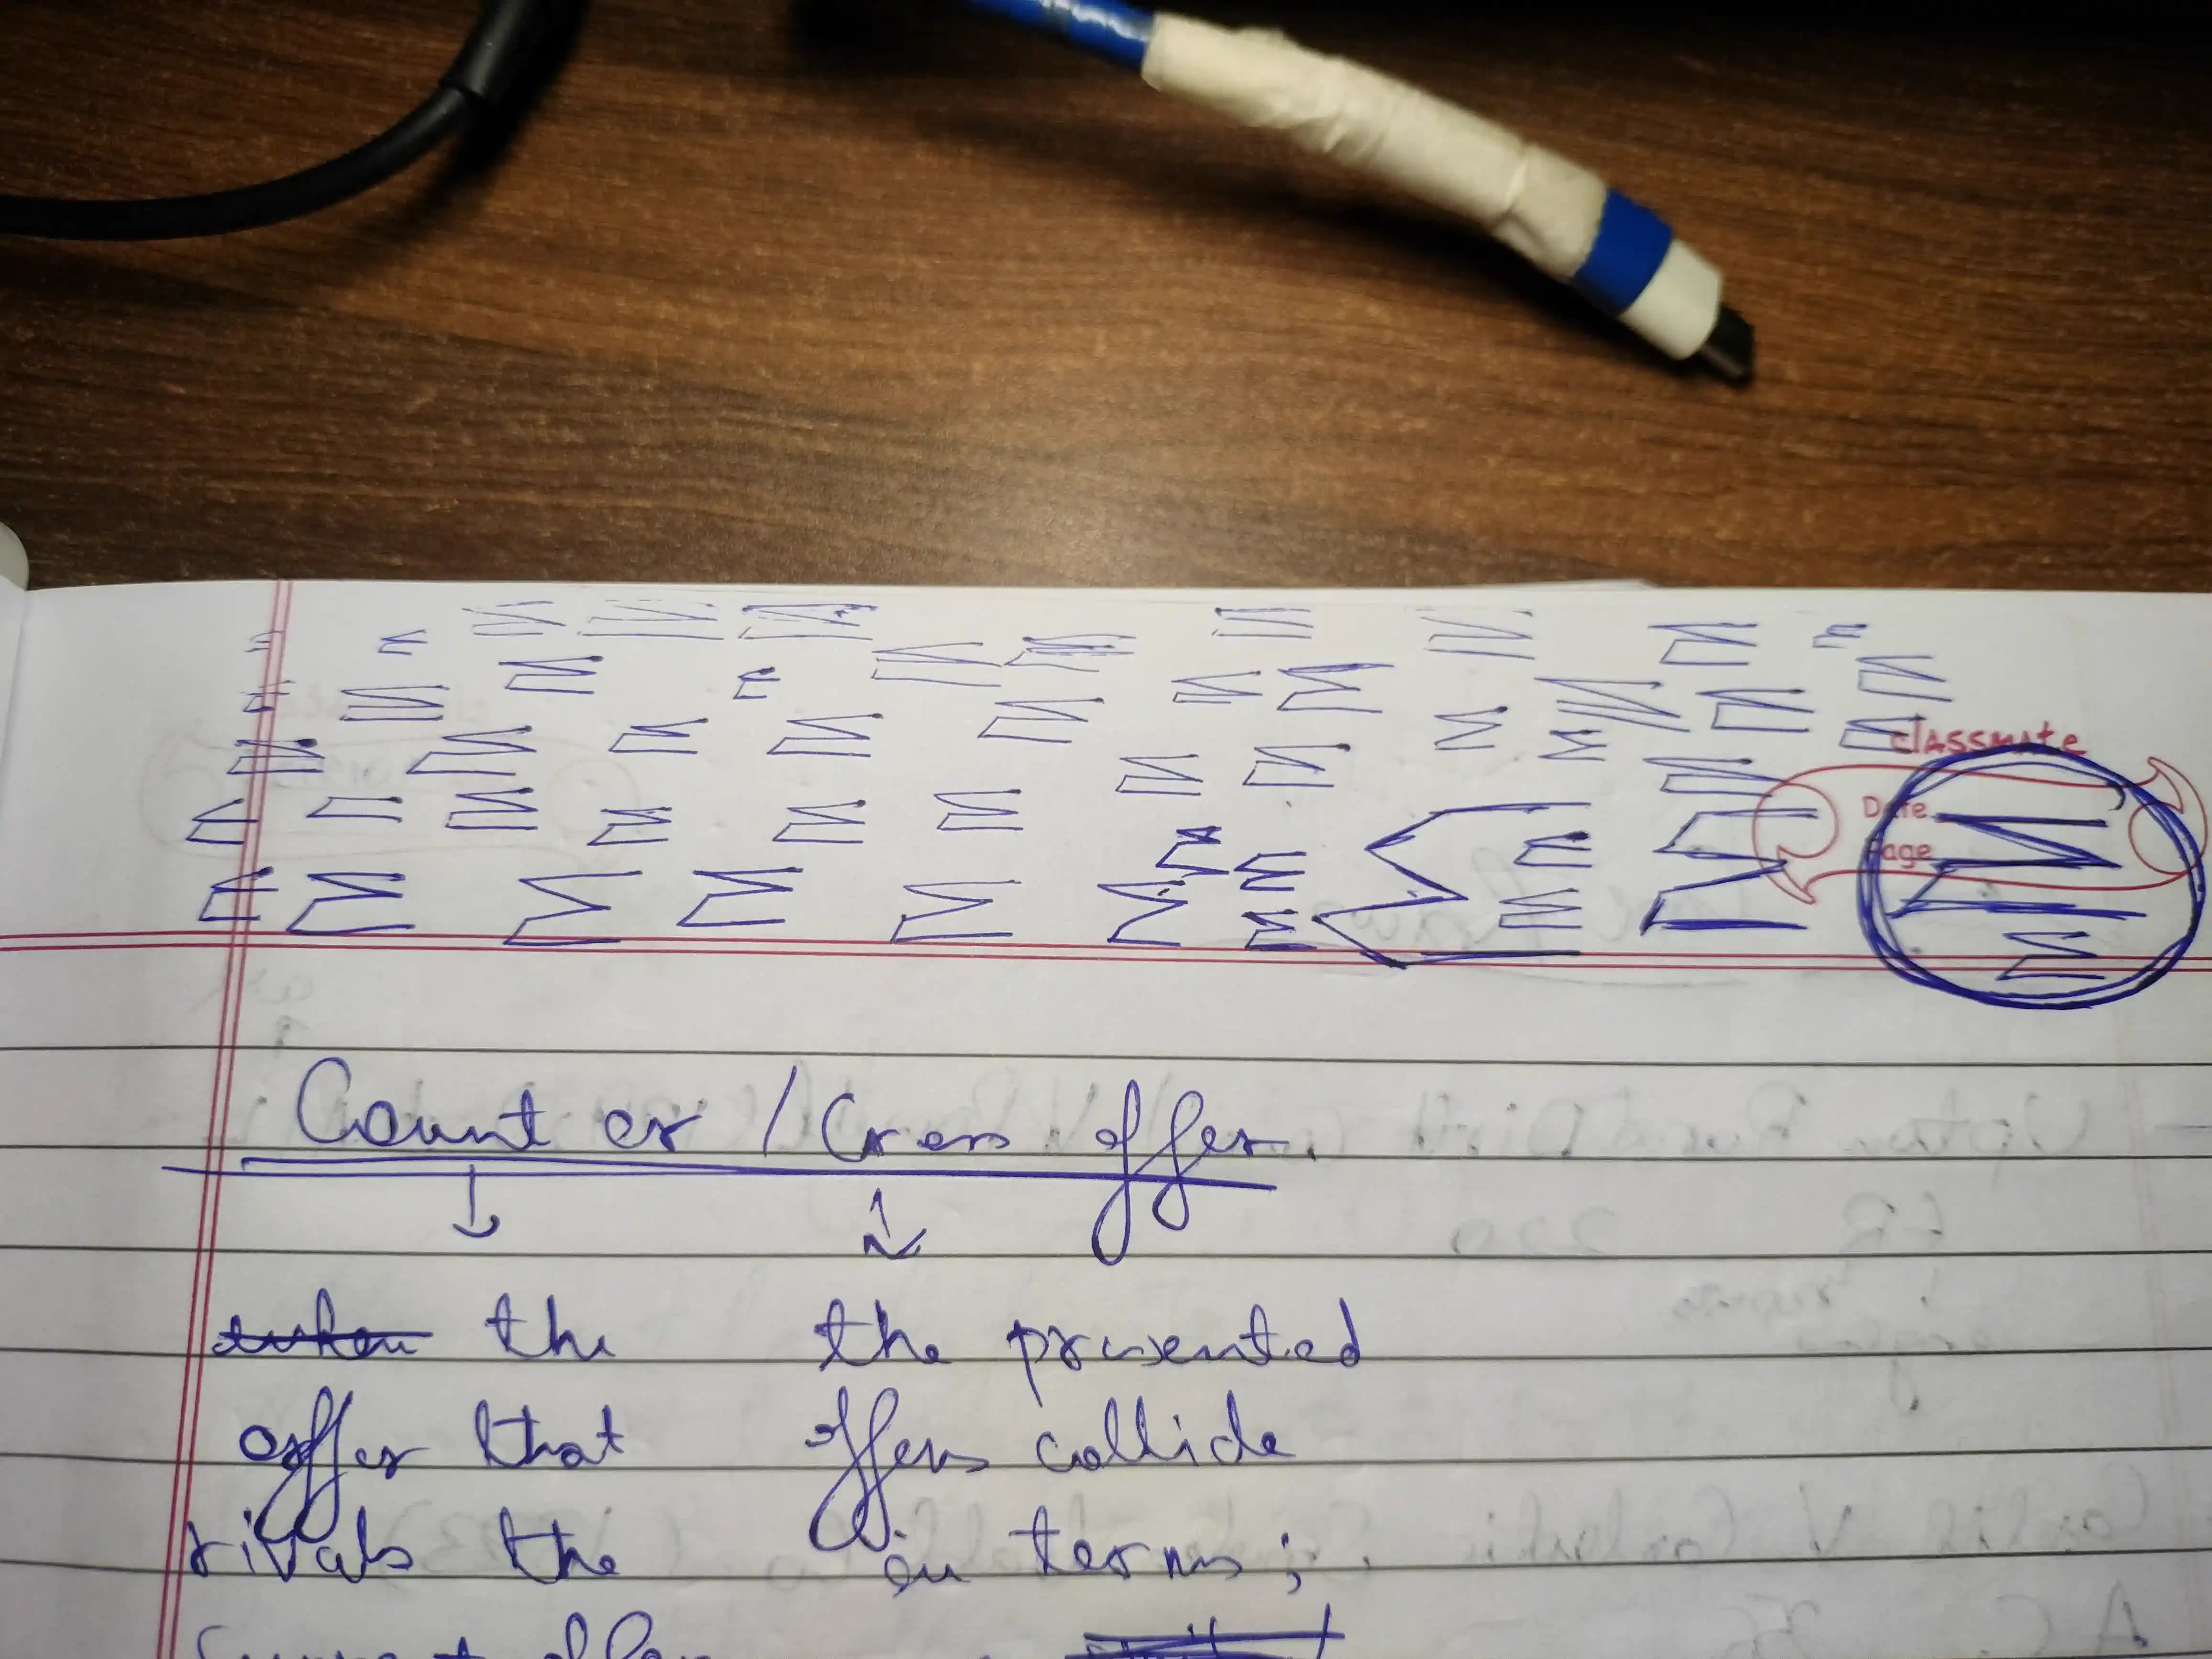 classmate
Date
Page
Counter / Cross offer.
the the presented
offer that offers collide
rivals the in terms;